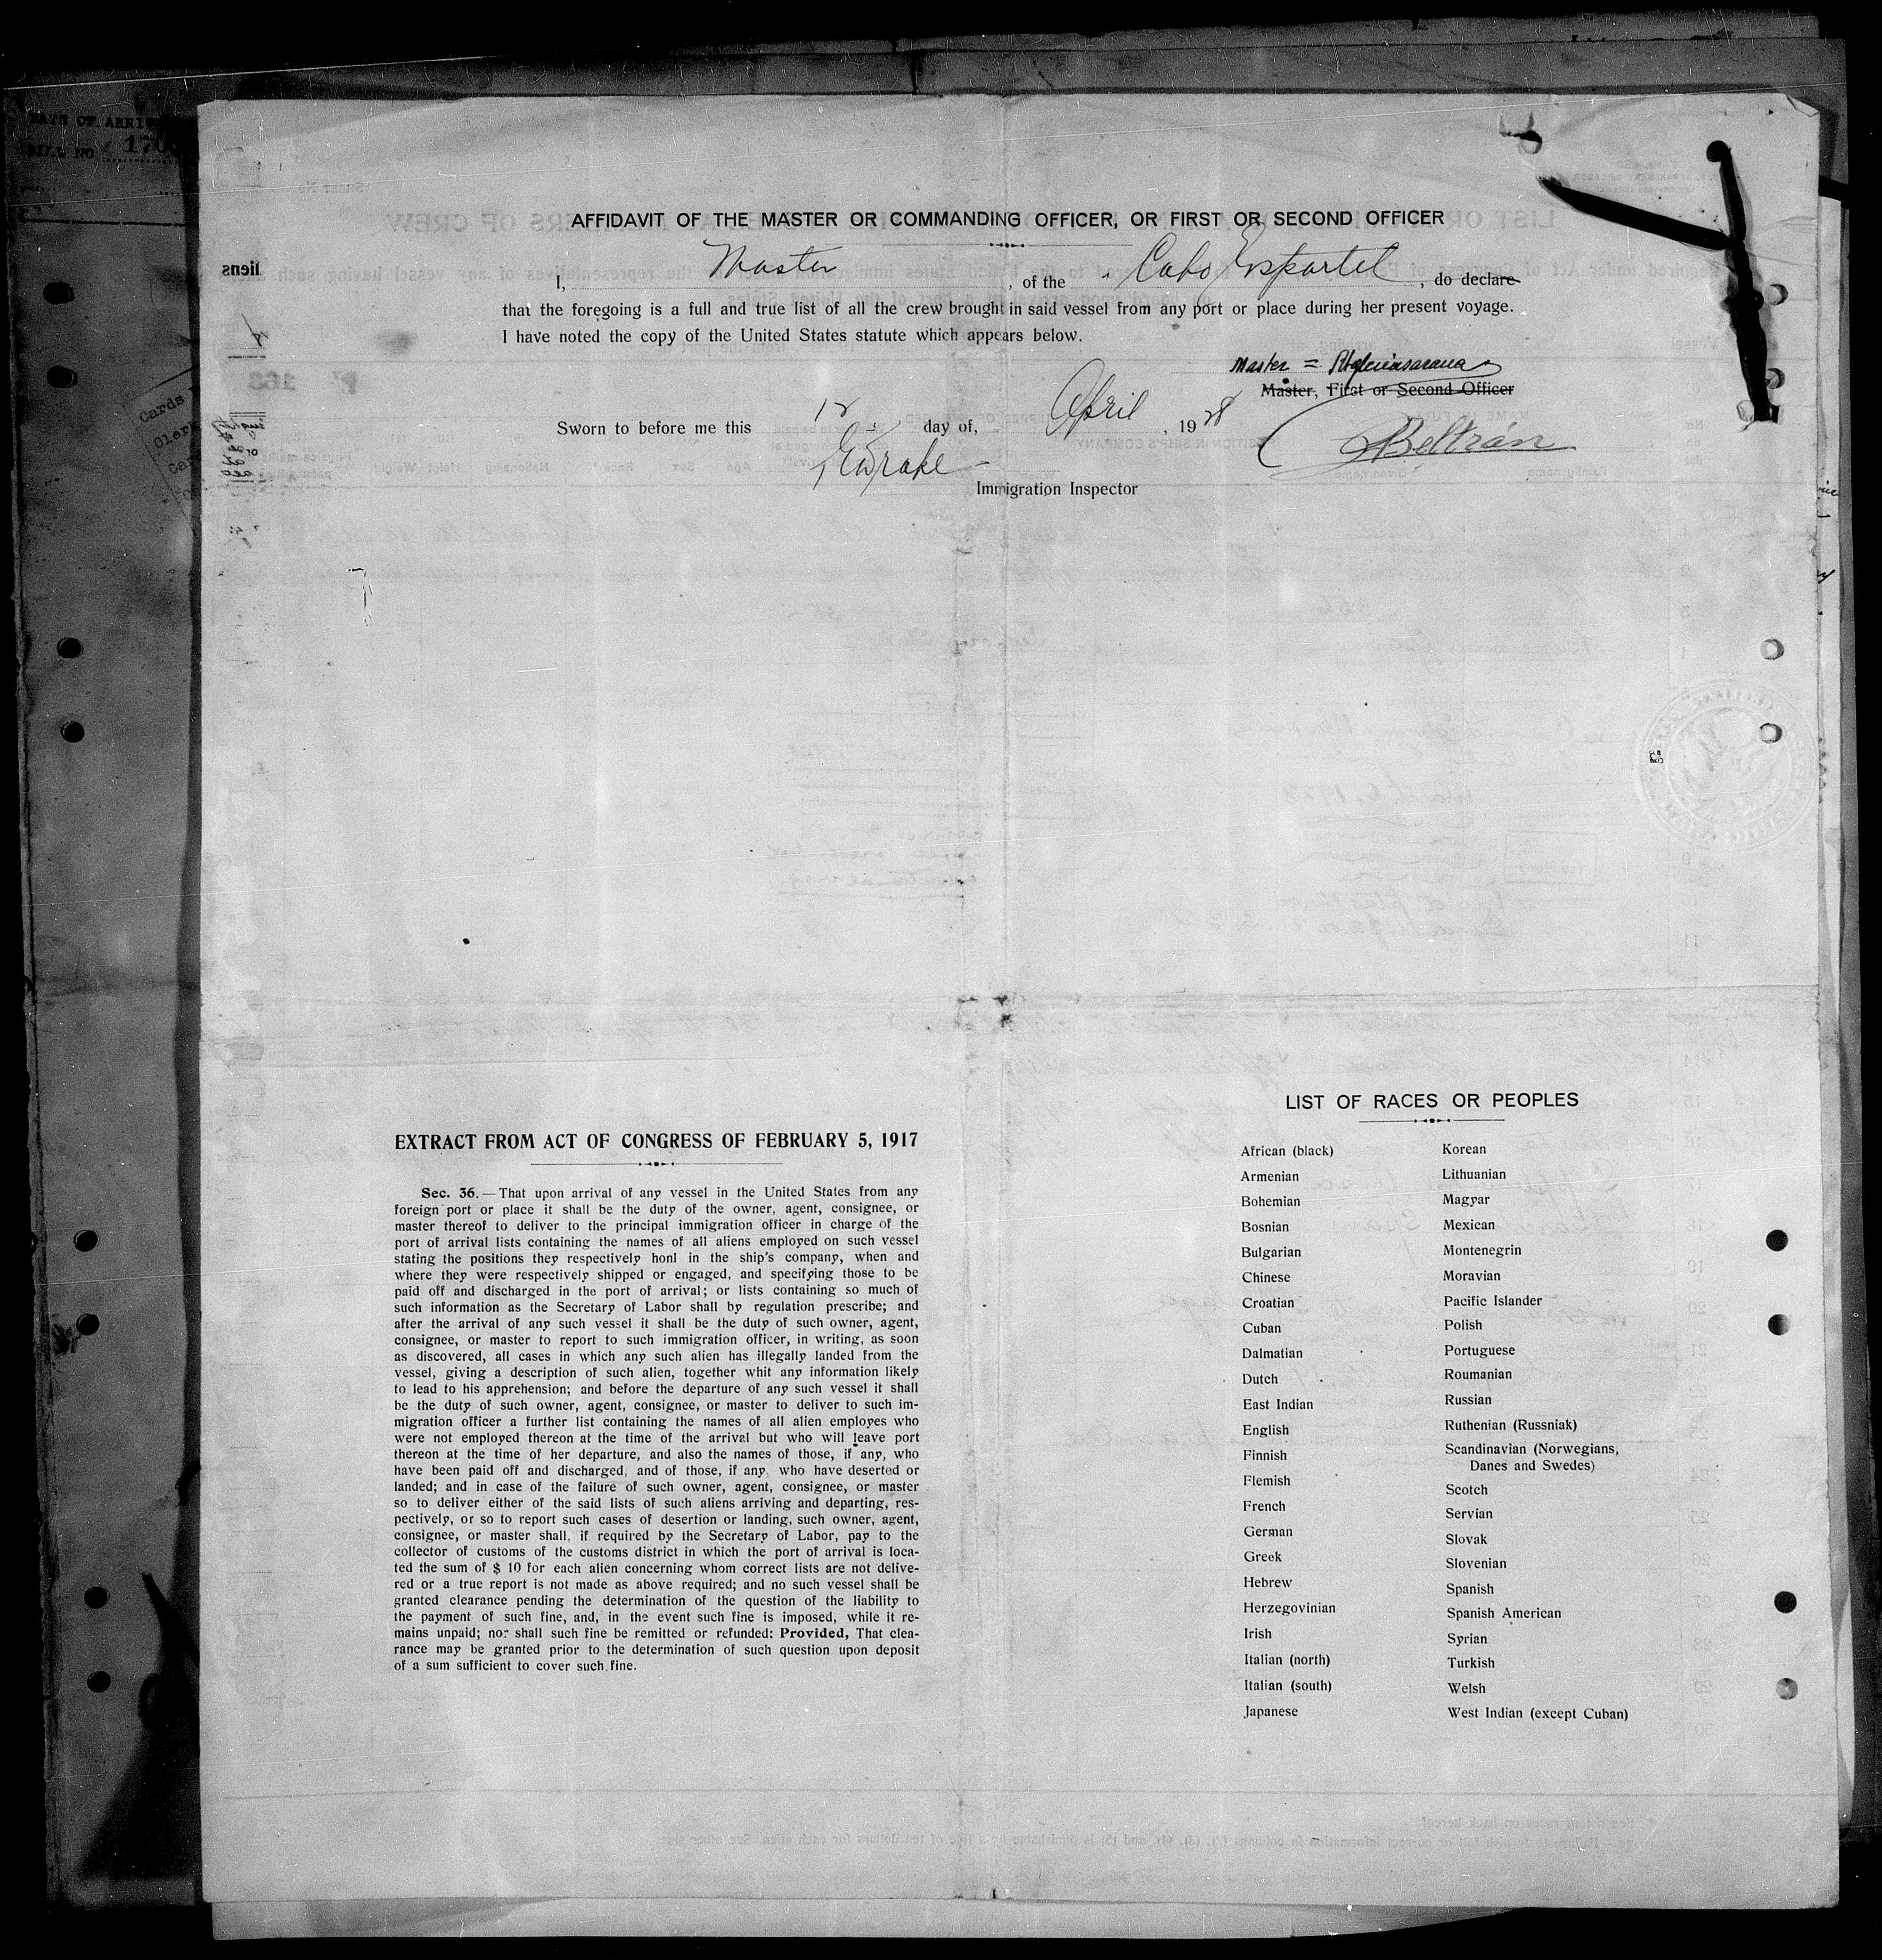 AFFIDAVIT OF THE MASTER OR COMMANDING OFFICER, OR FIRST OR SECOND OFFICER
I, Master, of the Cabo Espartel, do declare
that the foregoing is a full and true list of all the crew brought in said vessel from any port or place during her present voyage.
I have noted the copy of the United States statute which appears below.
Master =
Master, First or Second Officer
Sworn to before me this 12 day of, April, 1928
Beltrán
Drake
Immigration Inspector
EXTRACT FROM ACT OF CONGRESS OF FEBRUARY 5, 1917
Sec. 36.—That upon arrival of any vessel in the United States from any
foreign port or place it shall be the duty of the owner, agent, consignee, or
master thereof to deliver to the principal immigration officer in charge of the
port of arrival lists containing the names of all aliens employed on such vessel
stating the positions they respectively honl in the ship's company, when and
where they were respectively shipped or engaged, and specifying those to be
paid off and discharged in the port of arrival; or lists containing so much of
such information as the Secretary of Labor shall by regulation prescribe; and
after the arrival of any such vessel it shall be the duty of such owner, agent,
consignee, or master to report to such immigration officer, in writing, as soon
as discovered, all cases in which any such alien has illegally landed from the
vessel, giving a description of such alien, together whit any information likely
to lead to his apprehension; and before the departure of any such vessel it shall
be the duty of such owner, agent, consignee, or master to deliver to such im-
migration officer a further list containing the names of all alien employes who
were not employed thereon at the time of the arrival but who will leave port
thereon at the time of her departure, and also the names of those, if any, who
have been paid off and discharged, and of those, if any, who have deserted or
landed; and in case of the failure of such owner, agent, consignee, or master
so to deliver either of the said lists of such aliens arriving and departing, res-
pectively, or so to report such cases of desertion or landing, such owner, agent,
consignee, or master shall, if required by the Secretary of Labor, pay to the
collector of customs of the customs district in which the port of arrival is loca-
ted the sum of $ 10 for each alien concerning whom correct lists are not delive-
red or a true report is not made as above required; and no such vessel shall be
granted clearance pending the determination of the question of the liability to
the payment of such fine, and, in the event such fine is imposed, while it re-
mains unpaid; nor shall such fine be remitted or refunded: Provided, That clea-
rance may be granted prior to the determination of such question upon deposit
of a sum sufficient to cover such fine.
LIST OF RACES OR PEOPLES
African (black)
Armenian
Bohemian
Bosnian
Bulgarian
Chinese
Croatian
Cuban
Dalmatian
Dutch
East Indian
English
Finnish
Flemish
French
German
Greek
Hebrew
Herzegovinian
Irish
Italian (north)
Italian (south)
Japanese
Korean
Lithuanian
Magyar
Mexican
Montenegrin
Moravian
Pacific Islander
Polish
Portuguese
Roumanian
Russian
Ruthenian (Russniak)
Scandinavian (Norwegians,
Danes and Swedes)
Scotch
Servian
Slovak
Slovenian
Spanish
Spanish American
Syrian
Turkish
Welsh
West Indian (except Cuban)